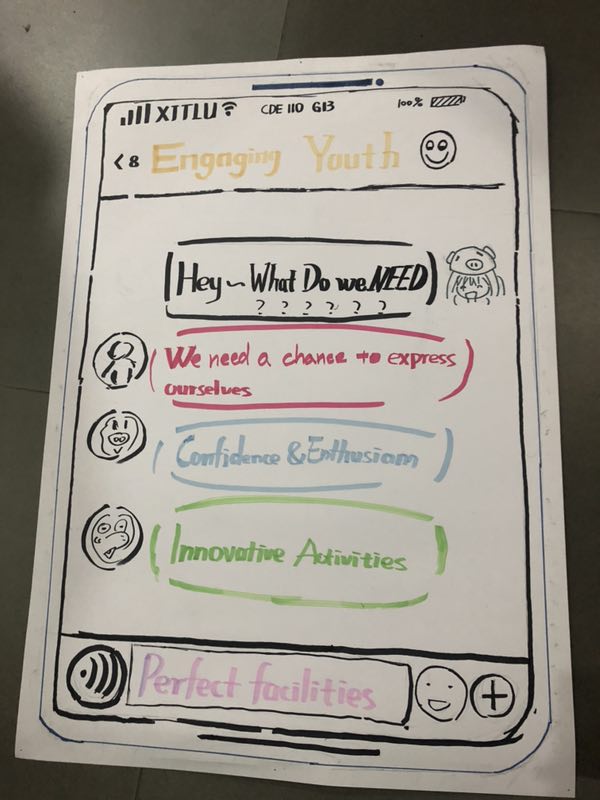 XJTLU CDE 110 G13 100%
< 8 Engaging Youth
Hey~ What Do we NEED
? ? ? ? ? ?
We need a chance to express
ourselves
Confidence & Enthusiasm
Innovative Activities
Perfect facilities